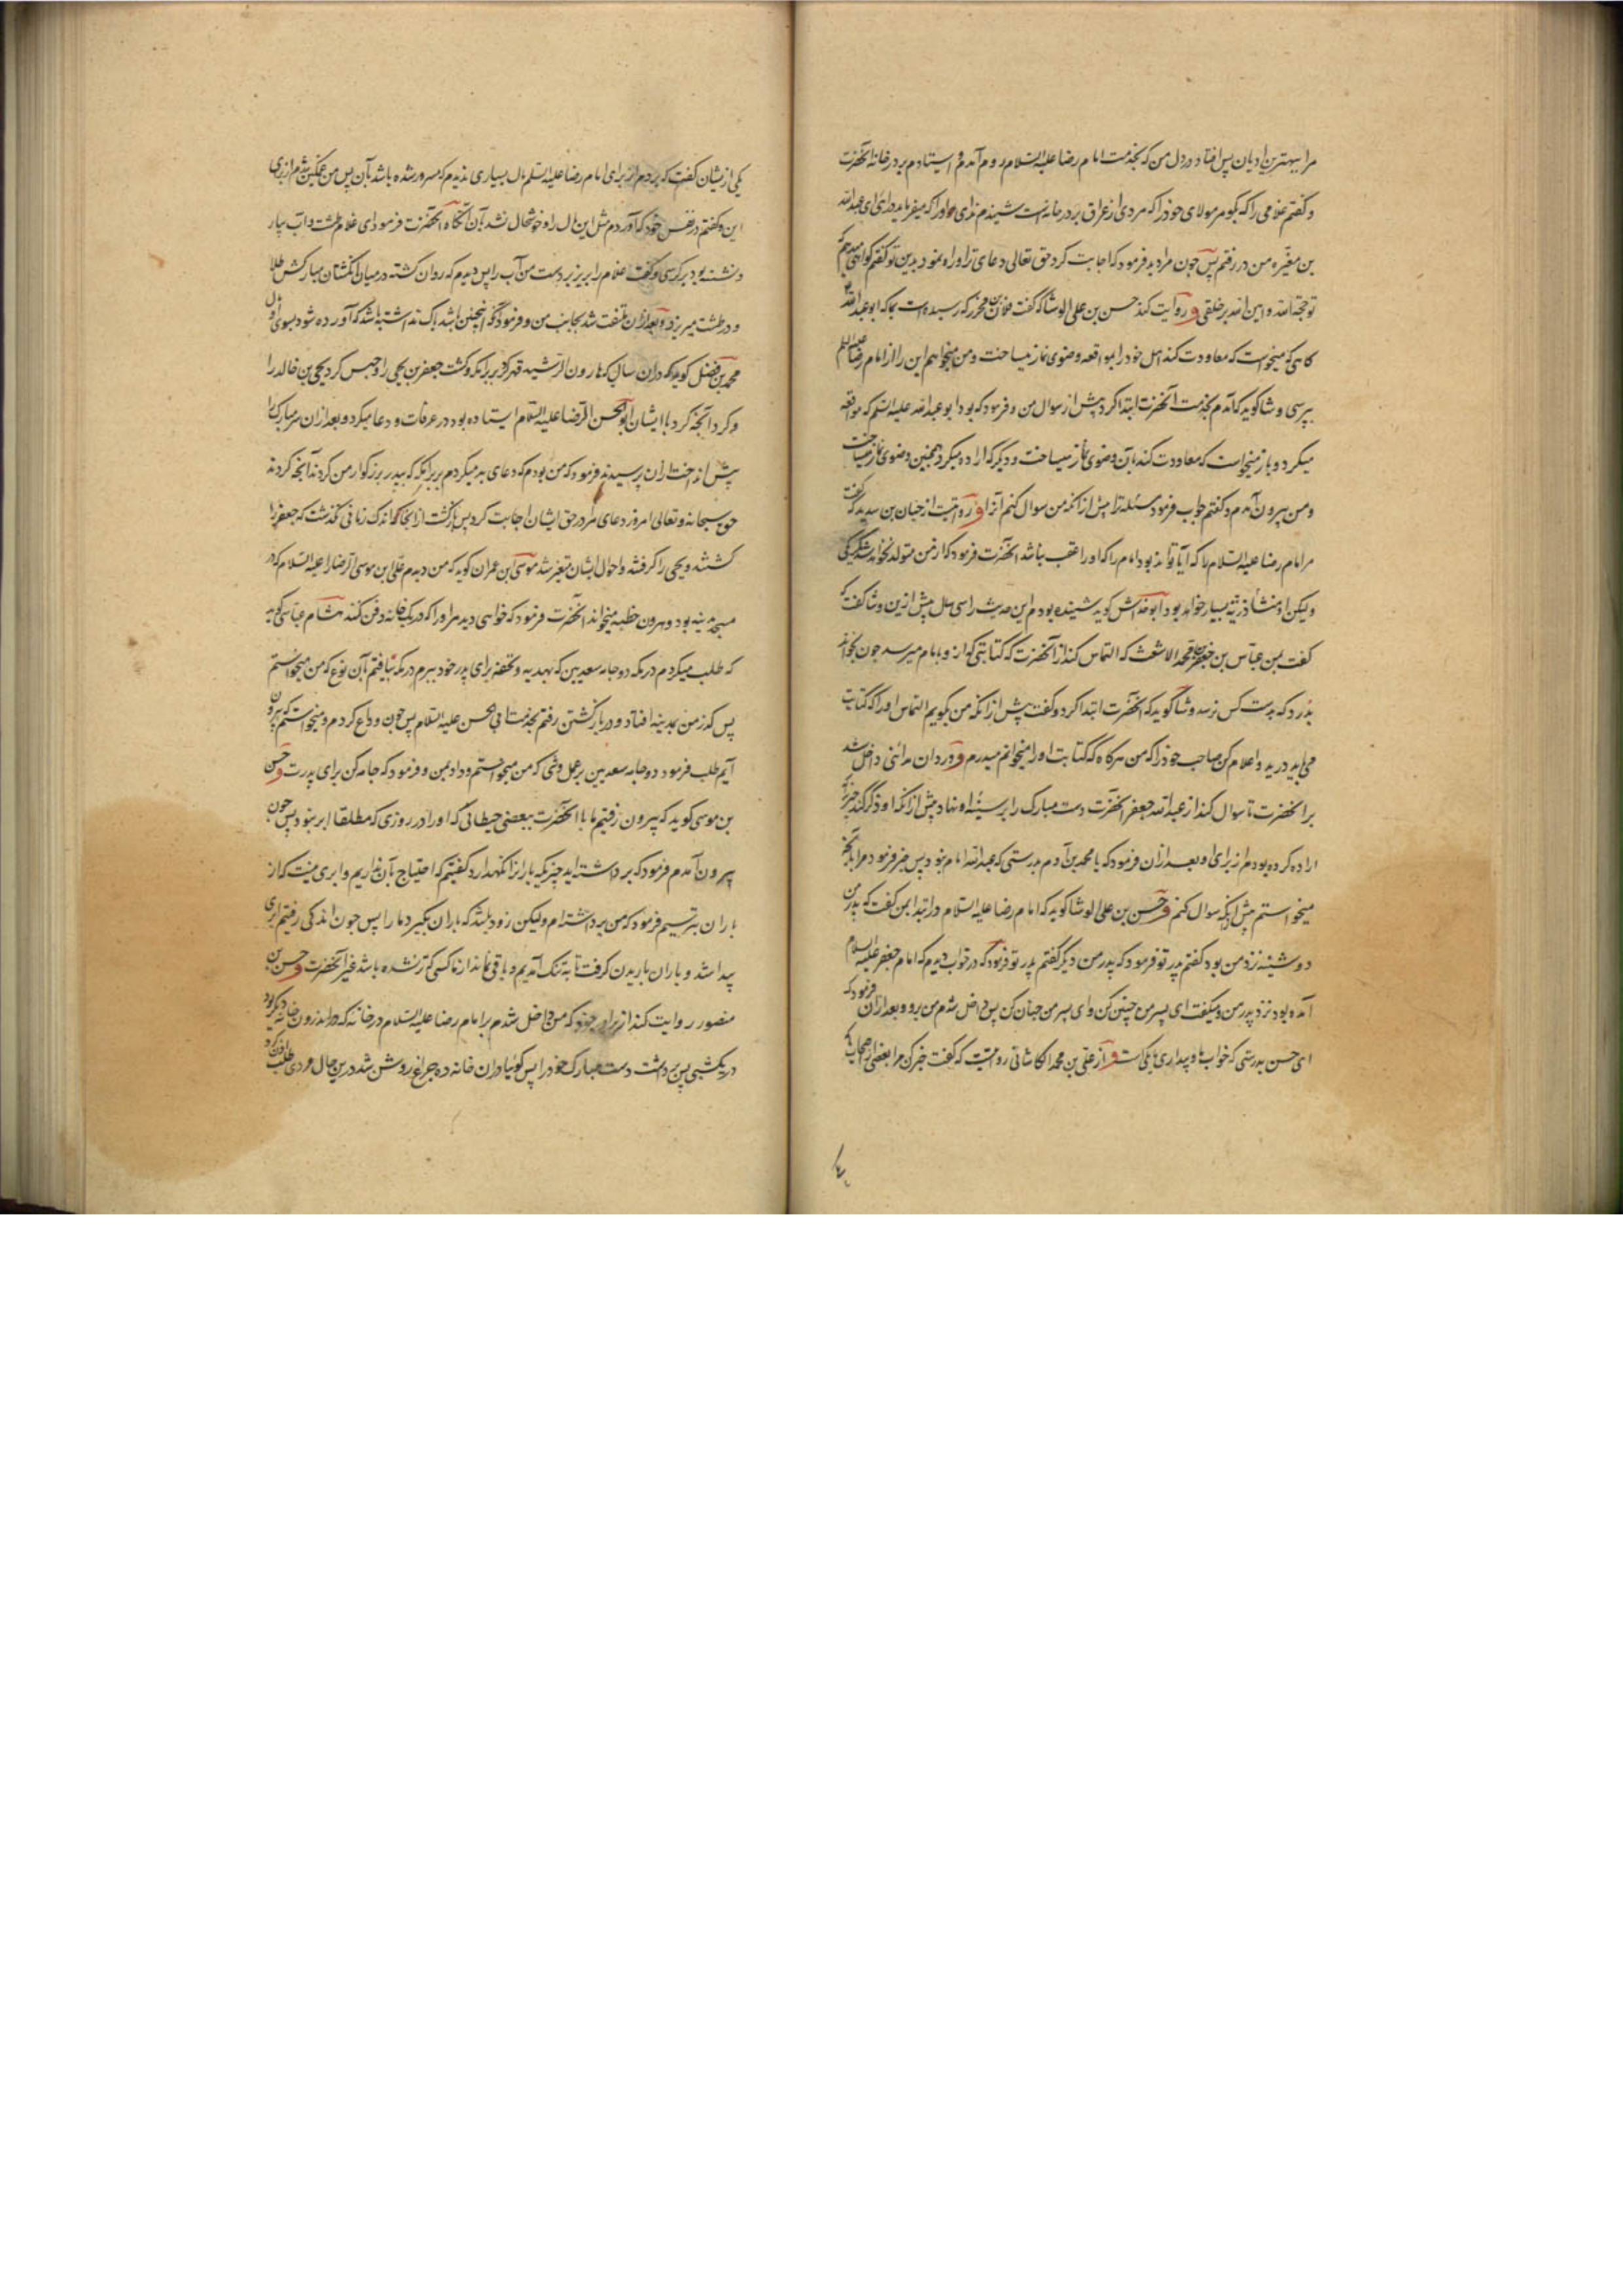 مرا ببهترین ادیان پس افتاد در دل من که بخدمت امام رضا علیه السلام روم آمدم و ایستادم بر در خانه آنحضرت
و گفتم غلامی را که بگو مر مولای خود را که مردی از عراق بر در خانه است شنیدم ندای او را که میفرماید درای ای عبدالله
بن مغیره من در رفتم پس چون مرا دید فرمود که اجابت کرد حق تعالی دعای ترا و راه نمود بدین تو گفتم گواهی میدهم که
تو حجة الله و امین الله بر خلقی و روایت کند حسن بن علی الوشا که گفت فلان بن محرز که رسیده است بما که ابو عبدالله
گاهی که میخواست که معاودت کند اهل خود را بمواقعه وضوی نماز میساخت و من میخواهم این را از امام رضا علیه السلم
بپرسی وشا گوید که آمدم بخدمت آنحضرت ابتدا کرد پیش از سوال من و فرمود که بود ابو عبدالله علیه السلم که مواقعه
میکرد و باز میخواست که معاودت کند بآن وضوی نماز میساخت و دیگر که اراده میکرد همچنین وضوی نماز میساخت
و من بیرون آمدم و گفتم جواب فرمود مسئله ترا پیش از آنکه من سوال کنم آنرا و روایتست از حنان بن سدیر که گفت
مر امام رضا علیه السلام را که آیا تواند بود امام را که او را عقب نباشد آنحضرت فرمود که از من متولد نخواهد شد مگر یکی
ولیکن او منشأ ذریة بسیار خواهد بود ابو خداش گوید شنیده بودم این حدیث را سی سال پیش ازین وشا گفت که
گفت بمن عباس بن جعفر بن محمد الاشعث که التماس کند از آنحضرت که کتابتی که از و بامام میرسد چون بخواند
بدرد که بدست کس نرسد وشا گوید که آنحضرت ابتدا کرد و گفت پیش از آنکه من بگویم التماس او را که کتابت
می‌باید درید و اعلام کن صاحب خود را که من هرگاه که کتابت او را میخوانم میدرم و وردان مدائنی داخل شد
بر آنحضرت تا سوال کند از عبدالله جعفر آنحضرت دست مبارک را بر سینه او نهاد پیش از آنکه او ذکر کند چیزی که
اراده کرده بودم از برای او بعد ازان فرمود که یا محمد بن آدم بدرستی که عبدالله امام نبود پس خبر فرمود مرا بآنچه
میخواستم پیش از آنکه سوال کنم و حسن بن علی الوشا گوید که امام رضا علیه السلام در ابتدا بمن گفت که پدر من
دوشینه نزد من بود گفتم پدر تو فرمود که پدر من دیگر گفتم پدر تو فرمود که در خواب دیدم که امام جعفر علیه السلام
آمده بود نزد پدر من و میگفت ای پسر من چنین کن و ای پسر من چنان کن پس داخل شدم من برو و بعد ازان فرمود که
ای حسن بدرستی که خواب ما و بیداری ما یکی است و از علی بن محمد الکاشانی روایتست که گفت خبر کن مرا بعضی از اصحاب ما که
یکی از یشان گفت که بردم از برای امام رضا علیه السلم مال بسیاری ندیدم که مسرور شده باشد بآن پس من غمگین شدم از برای
این و گفتم در نفس خود که آوردم مثل این مال را و خوشحال نشد بآن آنگاه آنحضرت فرمود ای غلام طشت و آب بیار
و نشسته بود بر کرسی و گفت غلام را بریز بر دست من آب را پس دیدم که روان گشته در میان انگشتان مبارکش طلا
و در طشت میریزد و بعد ازان ملتفت شد بجانب من و فرمود که کسی که اینچنین باشد باک نداشته باشد که آورده شود بسوی او مال
محمد بن فضل گوید که در ان سال که هارون الرشید قهر کرد بر برامکه و کشت جعفر بن یحیی را و حبس کرد یحیی بن خالد را
و کرد آنچه کرد با ایشان ابو الحسن الرضا علیه السلام ایستاده بود در عرفات و دعا میکرد و بعد ازان سر مبارک را
پیش انداخت ازان پرسیدند فرمود که من بودم که دعای بد میکردم بر برامکه که بپدر بزرگوار من کردند آنچه کردند
حق سبحانه و تعالی امروز دعای مرا در حق ایشان اجابت کرد پس بازگشت از آنجا که اندک زمانی نگذشت که جعفر را
کشتند و یحیی را گرفتند و احوال ایشان متغیر شد موسی بن عمران گوید که من دیدم علی بن موسی الرضا را علیه السلام که در
مسجد مدینه بود و هرون خطبه میخواند آنحضرت فرمود که خواهی دید مرا و را که در یک خانه دفن کنند هشام عباسی گوید
که طلب میکردم در مکه دو جامه سعدیین که بهدیه و تحفه برای پدر خود ببرم در مکه نیافتم بآن نوع که من میخواستم
پس گذر من بمدینه افتاد و در بازگشتن رفتم بخدمت ابی الحسن علیه السلام پس چون وداع کردم و میخواستم که بیرون
آیم طلب فرمود دو جامه سعدیین بر عمل وشی که من میخواستم و داد بمن و فرمود که جامه کن برای پدرت و حسن
بن موسی گوید که بیرون رفتیم ما با آنحضرت ببعضی حیطانی که او را در روزی که مطلقا ابر نبود پس چون
بیرون آمدیم فرمود که برداشته اید چیزیکه باران را نگهدارد گفتیم که احتیاج بآن نداریم و ابری نیست که از
باران بترسیم فرمود که من برداشته‌ام ولیکن زود باشد که باران بگیرد ما را پس چون اندکی رفتیم ابری
پیدا شد و باران باریدن گرفت تا به تنگ آمدیم و باقی نماند از ما کسی که تر نشده باشد غیر آنحضرت و حسن بن
منصور روایت کند از برادر خود که من داخل شدم بر امام رضا علیه السلام در خانه که در اندرون خانه دیگر بود
در یکشبی پس برداشت دست مبارک خود را پس گوئیا در ان خانه ده چراغ روشن شد درین حال مردی طلب اذن کرد